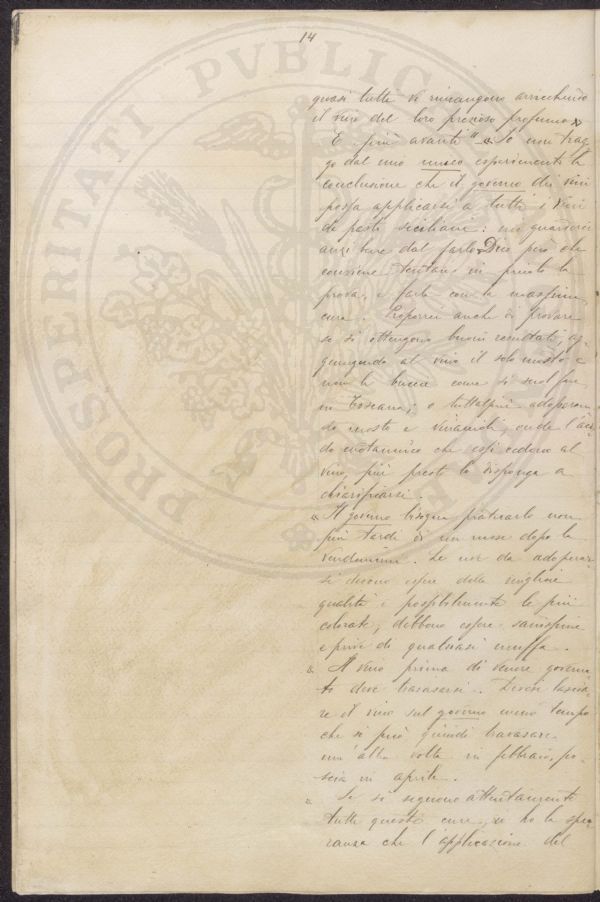 14
quasi tutti vi rimangono arricchendo
il vino del loro prezioso profumo.»
E più avanti "«Io non trag-
go dal mio unico esperimento la
conclusione che il governo dei vini
possa applicarsi a tutti i vini
da pasto siciliani: mi guarderei
anzi bene dal farlo. Dico però che
conviene tentare in piccolo la
prova, e farla con la massima
cura. Proporrei anche di provare
se si ottengono buoni risultati, ag-
giungendo al vino il solo mosto e
non le bucce come si suol fare
in Toscana; o tutt'alpiù adoperan-
do mosto e vinaccioli, onde l'aci-
do enotannico che essi cedono al
vino, più presto lo disponga a
chiarificarsi.
« Il governo bisogna praticarlo non
più tardi di un mese dopo la
vendemmia. Le uve da adoperar-
si devono essere della migliore
qualità e possibilmente le più
colorate, debbono essere sanissime
e prive di qualsiasi muffa.
« Il vino prima di venire governa-
to deve travasarsi. Devesi lascia-
re il vino sul governo meno tempo
che si può quindi travasare
un'altra volta in febbraio, po-
scia in aprile.
« Se si seguono attentamente
tutte queste cure, io ho la spe-
ranza che l'applicazione del
PROSPERITATI PVBLICAE